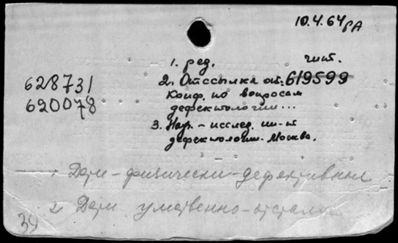 10.4.64 РА
1. ред. чит.
628731
620078
2. Отссылка от. 619599
Конф. по вопросам
дефектологии...
3. Науч.-исслед. ин-т
дефектологии. Москва.
1 Дети - физически-дефективные
2 Дети умственно-отсталые
34